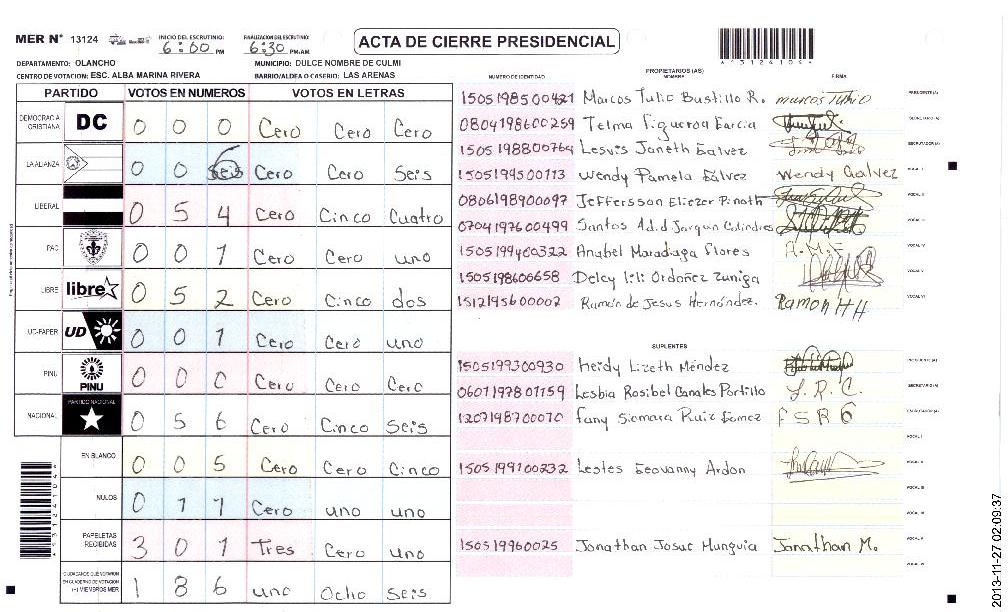 MER N° 13124
INICIO DEL ESCRUTINIO:
6:00 PM
FINALIZACION DEL ESCRUTINIO:
6:30 PM/AM
ACTA DE CIERRE PRESIDENCIAL
DEPARTAMENTO: OLANCHO
MUNICIPIO: DULCE NOMBRE DE CULMI
CENTRO DE VOTACION: ESC. ALBA MARINA RIVERA
BARRIO/ALDEA O CASERIO: LAS ARENAS
PARTIDO VOTOS EN NUMEROS VOTOS EN LETRAS
DEMOCRACIA CRISTIANA DC 0 0 0 Cero Cero Cero
LA ALIANZA 0 0 6 seis Cero Cero Seis
LIBERAL 0 5 4 Cero Cinco Cuatro
PAC 0 0 1 Cero Cero uno
LIBRE libre 0 5 2 Cero Cinco dos
UD-FAPER UD 0 0 1 Cero Cero uno
PINU PINU 0 0 0 Cero Cero Cero
NACIONAL PARTIDO NACIONAL 0 5 6 Cero Cinco Seis
EN BLANCO 0 0 5 Cero Cero Cinco
NULOS 0 1 1 Cero uno uno
PAPELETAS RECIBIDAS 3 0 1 Tres Cero uno
CIUDADANOS QUE VOTARON EN CUADERNO DE VOTACION (+) MIEMBROS MER 1 8 6 uno Ocho Seis
PROPIETARIOS (AS)
NUMERO DE IDENTIDAD NOMBRE FIRMA
1505198500421 Marcos Tulio Bustillo R. marcos Tulio PRESIDENTE(A)
0804198600259 Telma Figueroa Garcia SECRETARIO(A)
1505198800764 Lesvis Janeth Galvez ESCRUTADOR(A)
1505199500113 Wendy Pamela Galvez Wendy Galvez VOCAL I
0806198900097 Jeffersson Eliezer VOCAL II
0704197600499 Santos VOCAL III
1505199400322 Anabel Maradiaga Flores A.M.F VOCAL IV
1505198600658 Delcy Ordoñez Zuniga VOCAL V
1512195600002 Ramón de Jesus Hernández. Ramon H H VOCAL VI
SUPLENTES
1505199300930 Heidy Lizeth Méndez PRESIDENTE(A)
0601197801159 Lesbia Rosibel Canales Portillo L.R.C. SECRETARIO(A)
1207198700070 Fany Siomara Ruiz Gomez F S R G ESCRUTADOR(A)
VOCAL I
1505199100232 Lestes Geovanny Ardon VOCAL II
VOCAL III
VOCAL IV
150519960025 Jonathan Josue Munguia Jonathan M. VOCAL V
VOCAL VI
2013-11-27 02:09:37